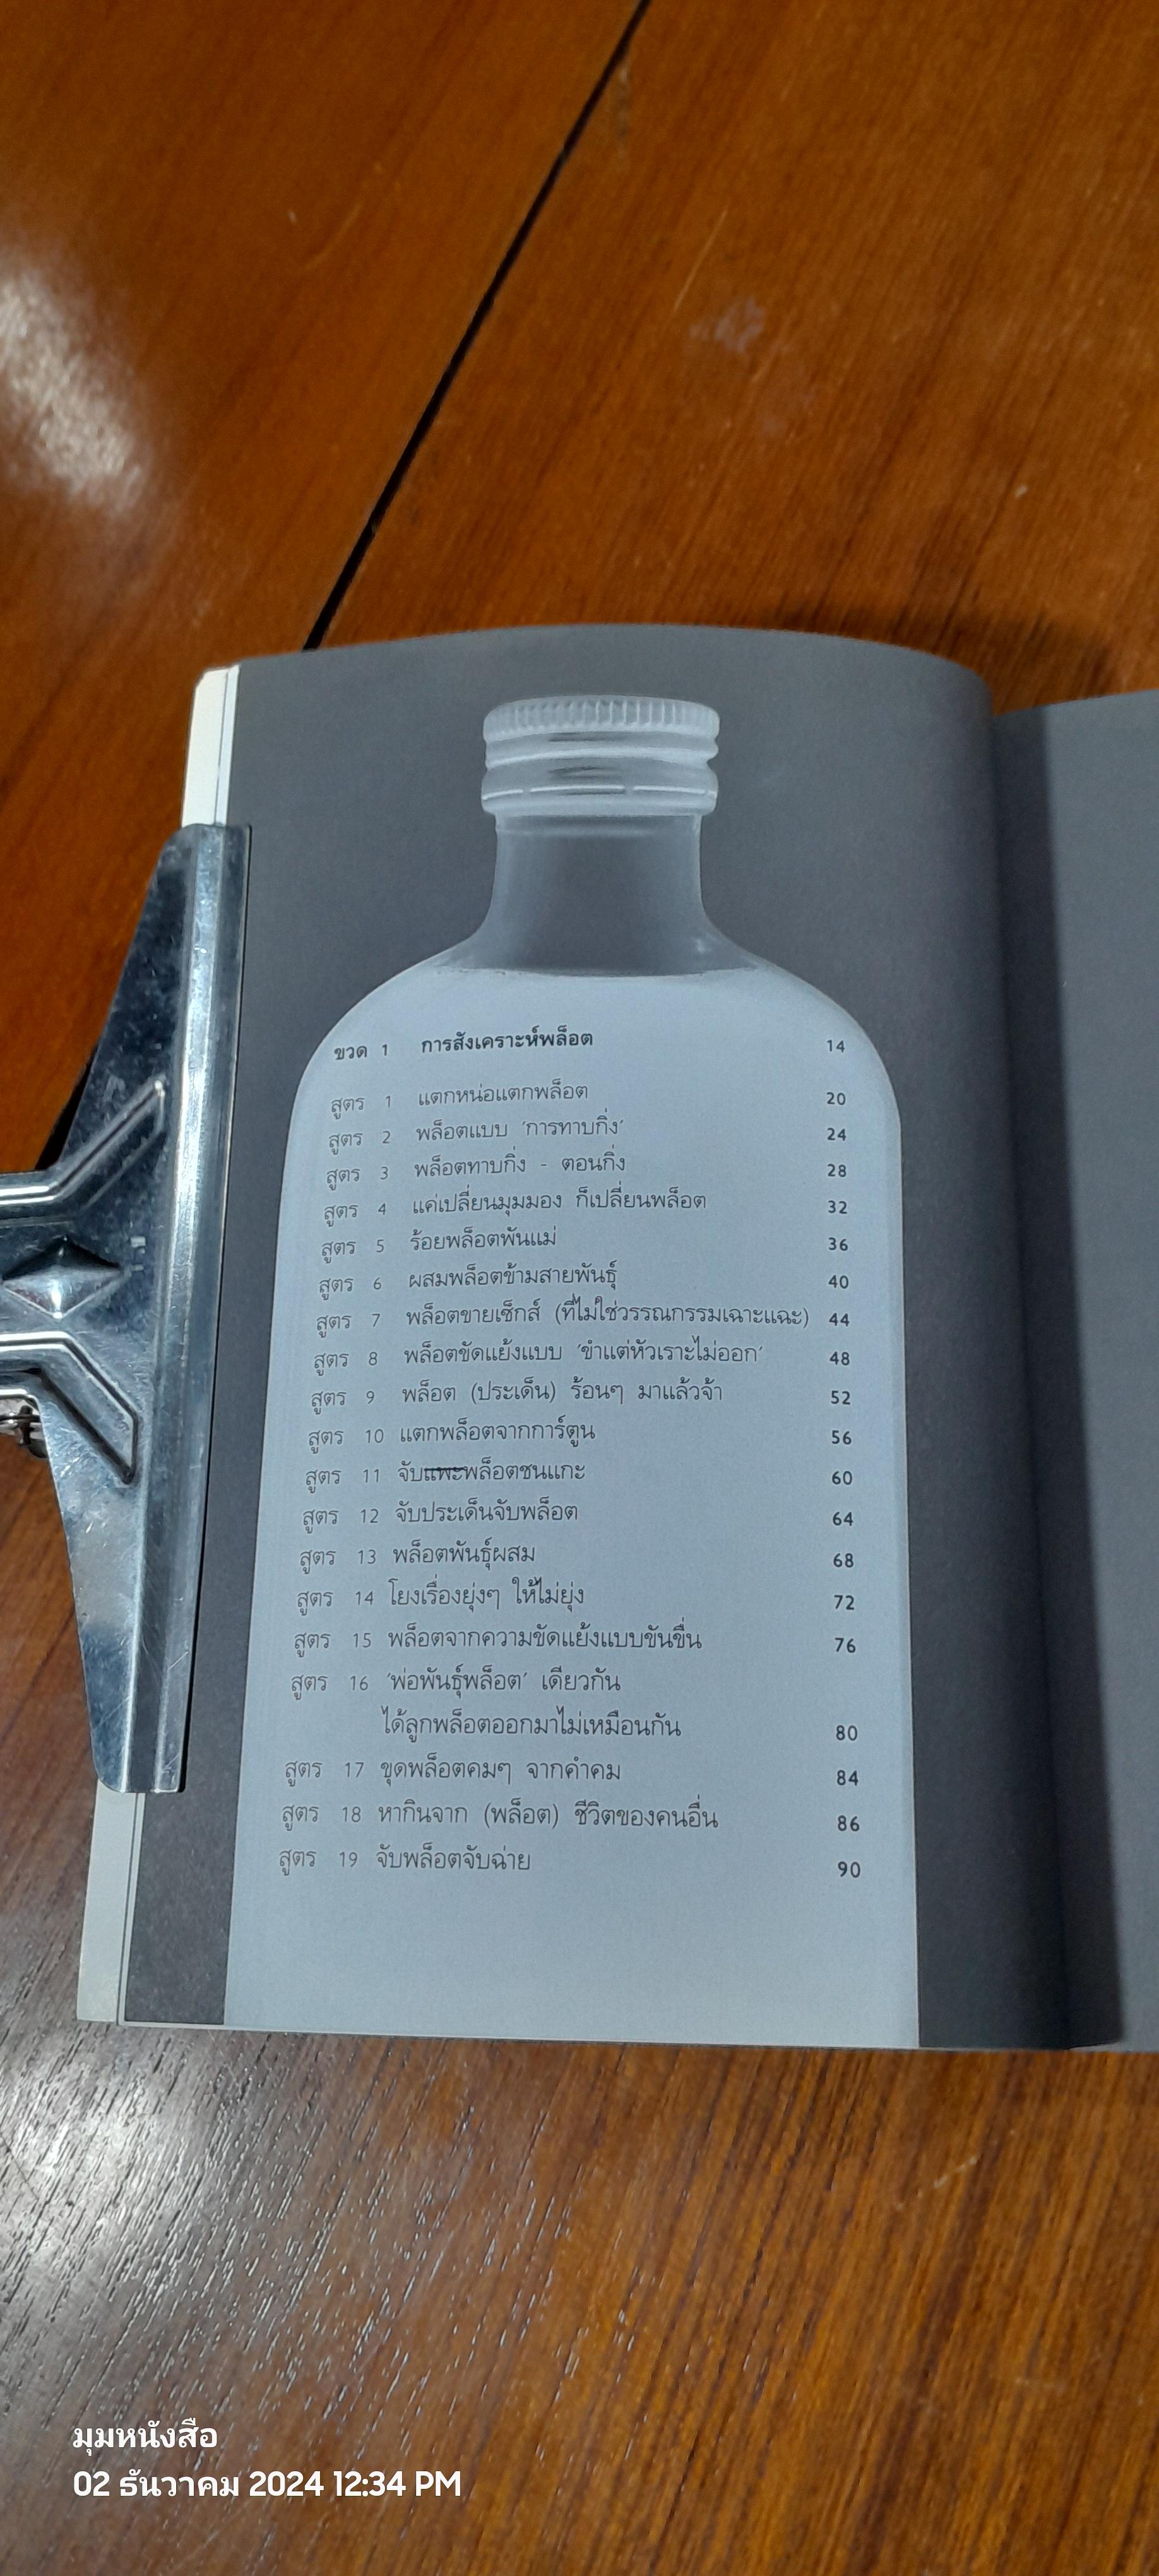 ขวด 1 การสังเคราะห์พล็อต 14
สูตร 1 แตกหน่อแตกพล็อต 20
สูตร 2 พล็อตแบบ 'การทาบกิ่ง' 24
สูตร 3 พล็อตทาบกิ่ง - ตอนกิ่ง 28
สูตร 4 แค่เปลี่ยนมุมมอง ก็เปลี่ยนพล็อต 32
สูตร 5 ร้อยพล็อตพันแม่ 36
สูตร 6 ผสมพล็อตข้ามสายพันธุ์ 40
สูตร 7 พล็อตขายเซ็กส์ (ที่ไม่ใช่วรรณกรรมเฉาะแฉะ) 44
สูตร 8 พล็อตขัดแย้งแบบ 'ขำแต่หัวเราะไม่ออก' 48
สูตร 9 พล็อต (ประเด็น) ร้อนๆ มาแล้วจ้า 52
สูตร 10 แตกพล็อตจากการ์ตูน 56
สูตร 11 จับแพะพล็อตชนแกะ 60
สูตร 12 จับประเด็นจับพล็อต 64
สูตร 13 พล็อตพันธุ์ผสม 68
สูตร 14 โยงเรื่องยุ่งๆ ให้ไม่ยุ่ง 72
สูตร 15 พล็อตจากความขัดแย้งแบบขันขื่น 76
สูตร 16 'พ่อพันธุ์พล็อต' เดียวกัน
ได้ลูกพล็อตออกมาไม่เหมือนกัน 80
สูตร 17 ขุดพล็อตคมๆ จากคำคม 84
สูตร 18 หากินจาก (พล็อต) ชีวิตของคนอื่น 86
สูตร 19 จับพล็อตจับฉ่าย 90
มุมหนังสือ
02 ธันวาคม 2024 12:34 PM